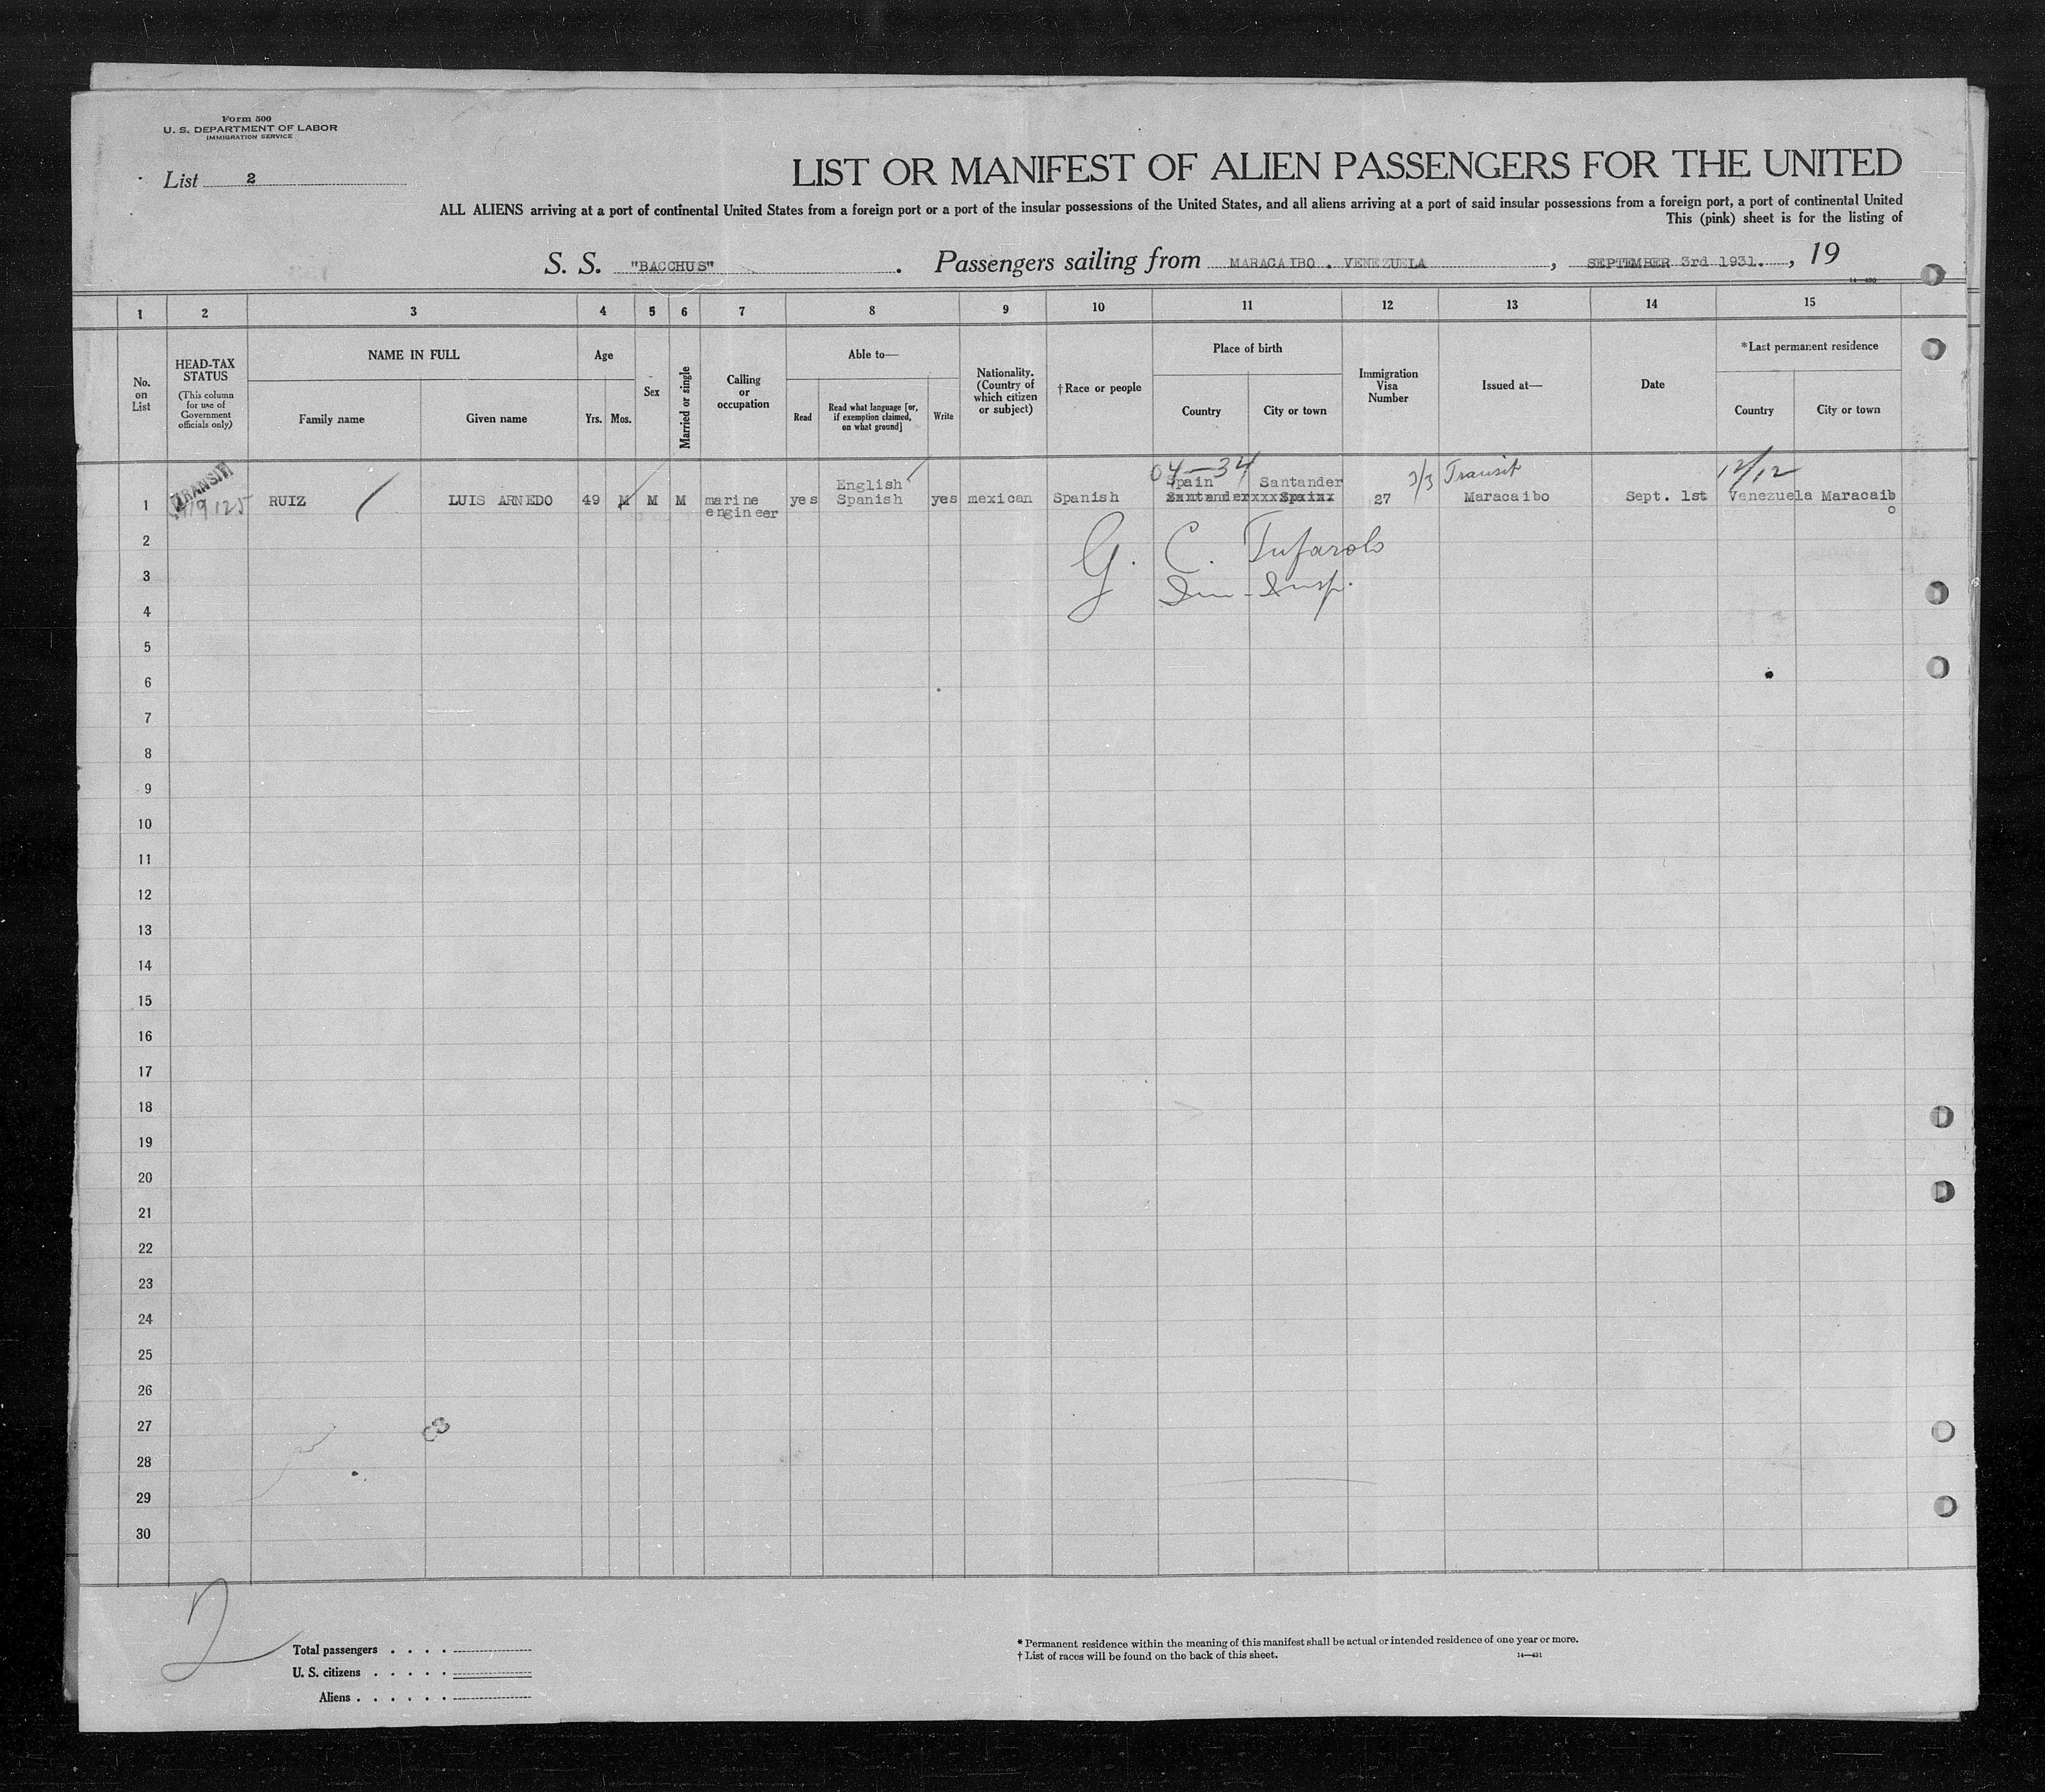 Form 500
U. S. DEPARTMENT OF LABOR
IMMIGRATION SERVICE
List 2
LIST OR MANIFEST OF ALIEN PASSENGERS FOR THE UNITED
ALL ALIENS arriving at a port of continental United States from a foreign port or a port of the insular possessions of the United States, and all aliens arriving at a port of said insular possessions from a foreign port, a port of continental United
This (pink) sheet is for the listing of
S. S. "BACCHUS". Passengers sailing from MARACAIBO . VENEZUELA, SEPTEMBER 3rd 1931., 19
14—430
1 2 3 4 5 6 7 8 9 10 11 12 13 14 15
No. on List
HEAD-TAX STATUS
(This column for use of Government officials only)
NAME IN FULL
Family name
Given name
Age
Yrs. Mos.
Sex
Married or single
Calling or occupation
Able to—
Read
Read what language [or, if exemption claimed, on what ground]
Write
Nationality. (Country of which citizen or subject)
†Race or people
Place of birth
Country
City or town
Immigration Visa Number
Issued at—
Date
*Last permanent residence
Country
City or town
04-34 3/3 Transit 12/12
1 TRANSIT RUIZ LUIS ARNEDO 49 M M M marine engineer yes English Spanish yes mexican Spanish Spain Santander 27 Maracaibo Sept. 1st Venezuela Maracaibo
Santanderxxx Spainx
G. C. Tufarolo
Im-Insp.
2
3
4
5
6
7
8
9
10
11
12
13
14
15
16
17
18
19
20
21
22
23
24
25
26
27
28
29
30
2
Total passengers . . . .
U. S. citizens . . . . .
Aliens . . . . . .
* Permanent residence within the meaning of this manifest shall be actual or intended residence of one year or more.
† List of races will be found on the back of this sheet.
14—431